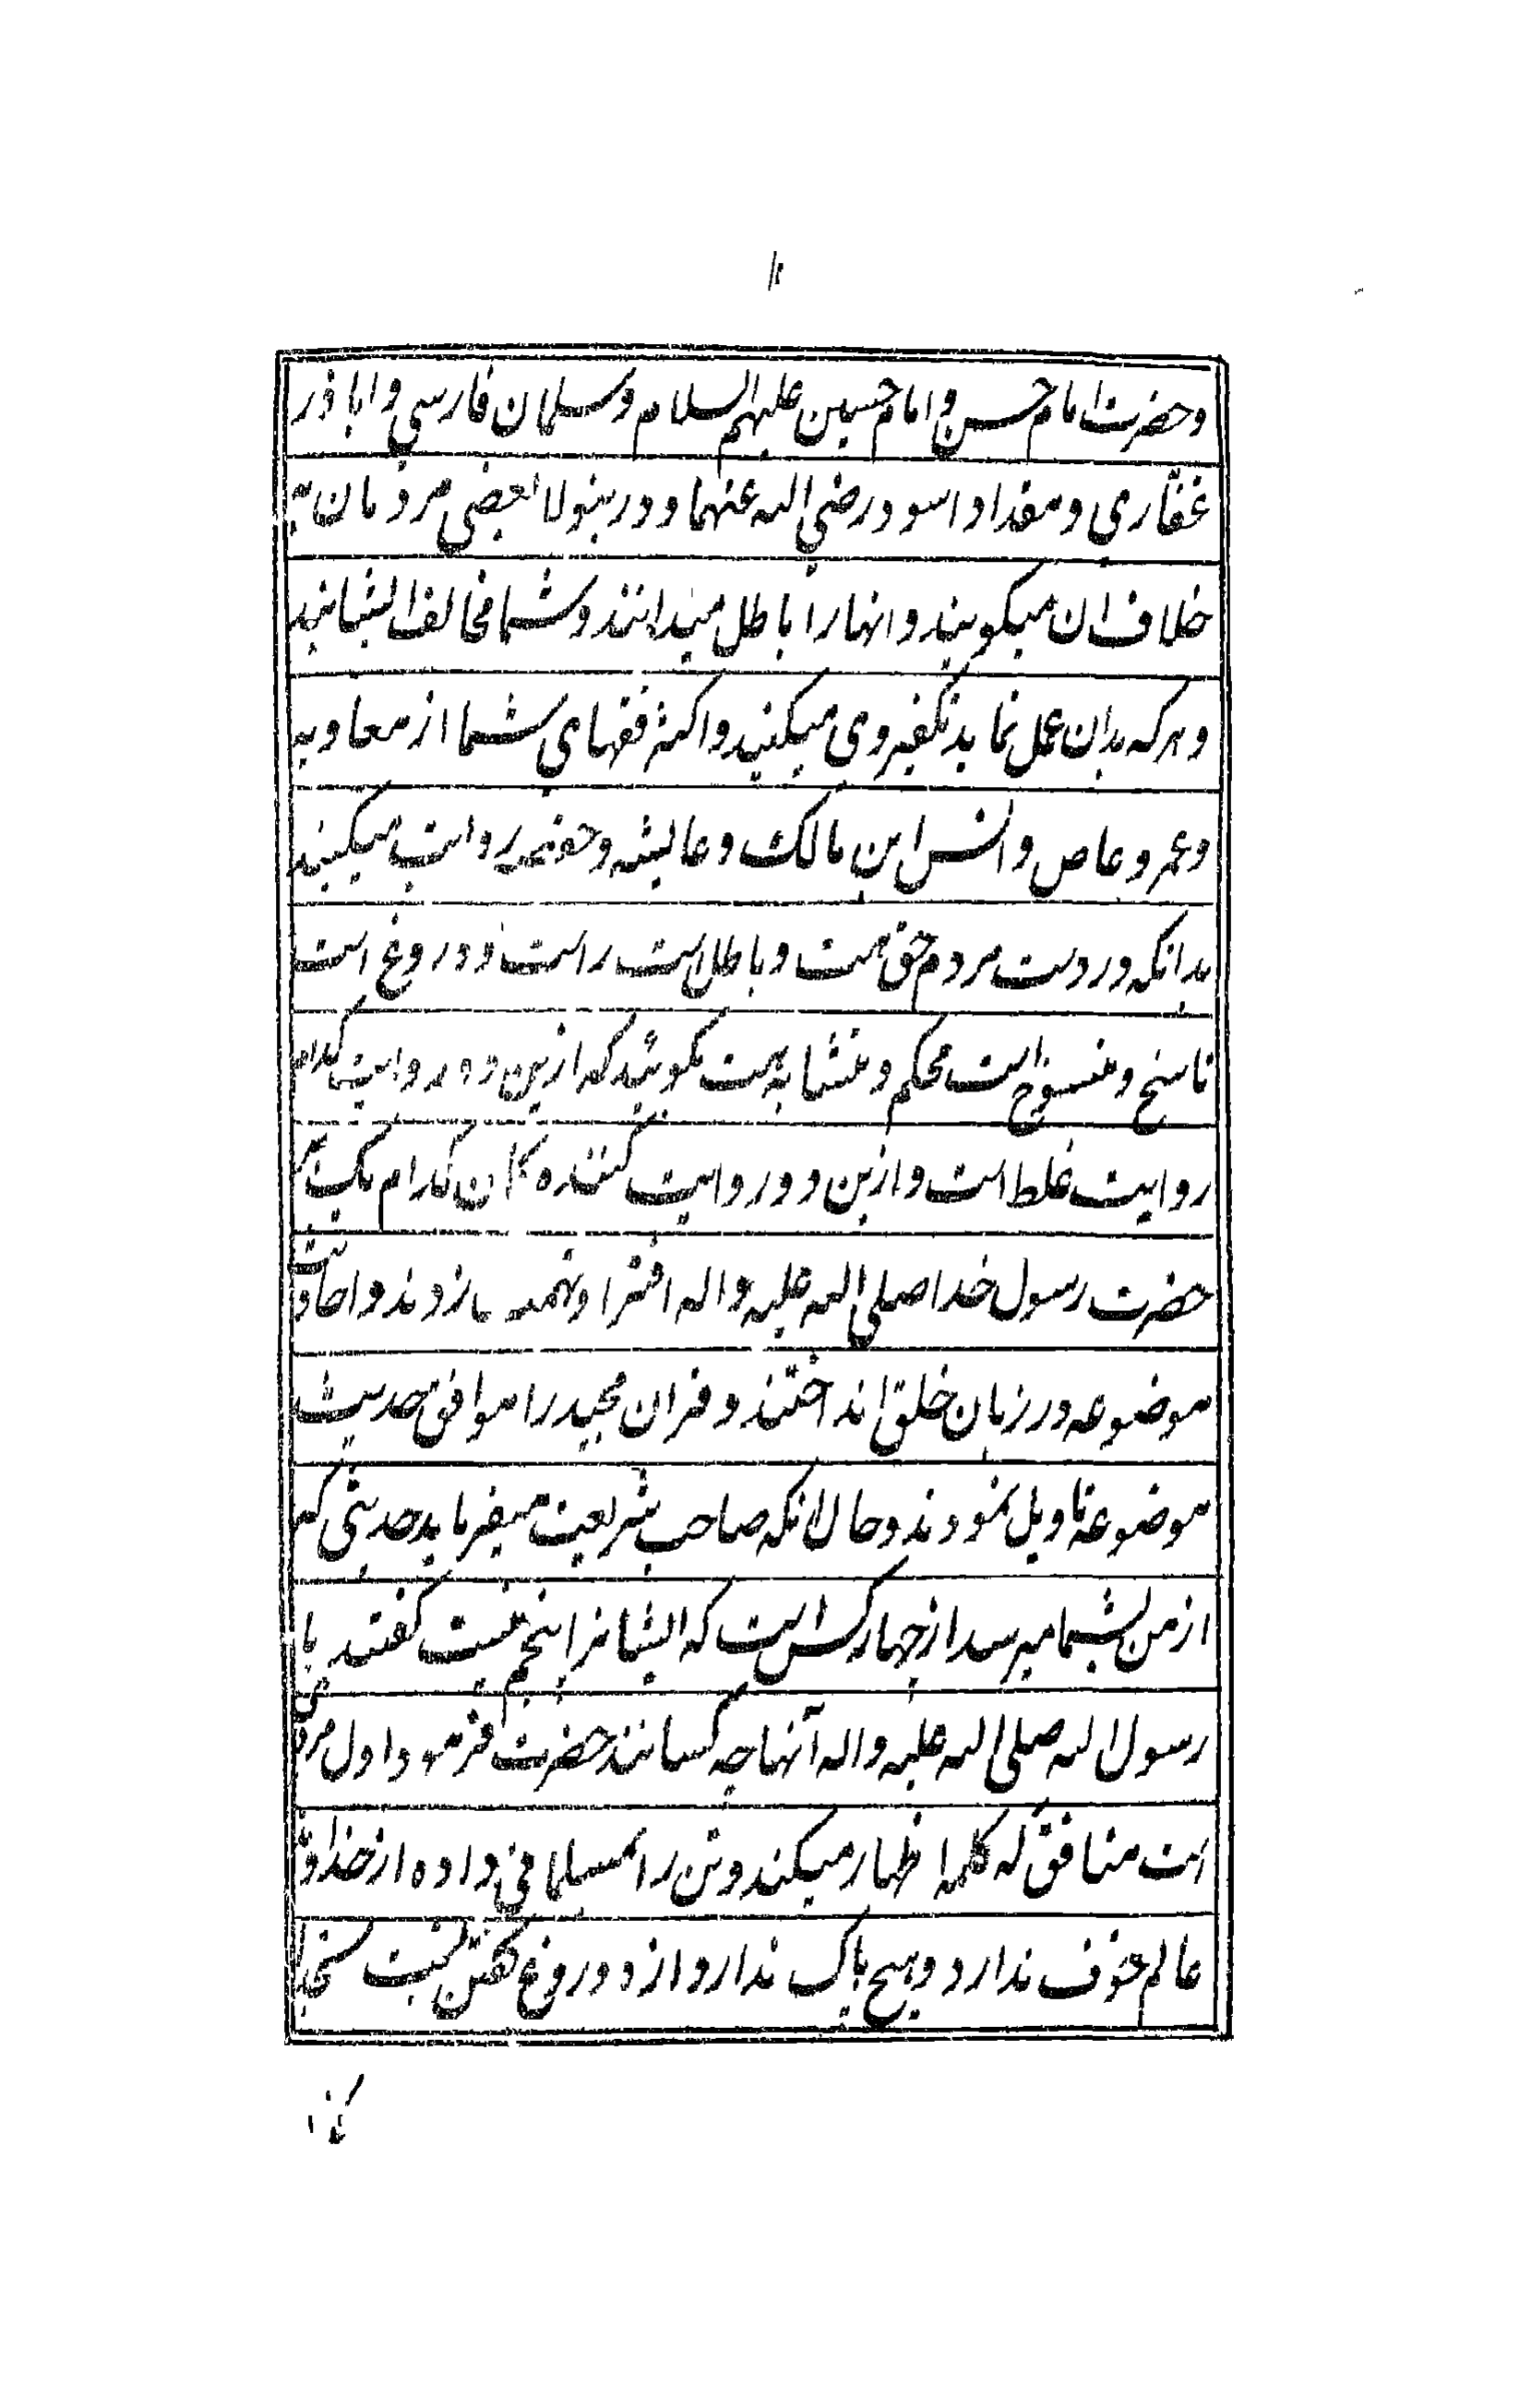 و حضرت امام حسن و امام حسین علیهم السلام و سلمان فارسی و اباذر
غفاری و مقداد اسود رضی الله عنهما و درینولا بعضی مردمان به
خلاف ان میگویند و انها را باطل میدانند و شما مخالف ایشانید
و هر که بدان عمل نماید تکفیر وی میکنید و اکثر فقهای شما از معاویه
و عمرو عاص و انس ابن مالک و عایشه و حفصه روایت میکنید
بدانکه در دست مردم حق است و باطل است راست و دروغ است
ناسخ و منسوخ است محکم و متشابه است بگویید که ازین دو روایت کدام
روایت غلط است و ازین دو روایت کننده کان کدام یک
حضرت رسول خدا صلی الله علیه و اله افترا و تهمت ها زدند و احادیث
موضوعه در زبان خلق انداختند و قران مجید را موافق حدیث
موضوعه تاویل نمودند و حال انکه صاحب شریعت میفرماید حدیثی که
از من بشما میرسد از چهار کس است که ایشانرا پنجم نیست گفتند یا
رسول الله صلی الله علیه و اله آنها چه کسانند حضرت فرمود اول مردی
است منافق که کلمه اظهار میکند و تن را بمسلمانی داده از خداوند
عالم خوف ندارد و هیچ باک ندارد از دروغ گفتن نسبت بخدا